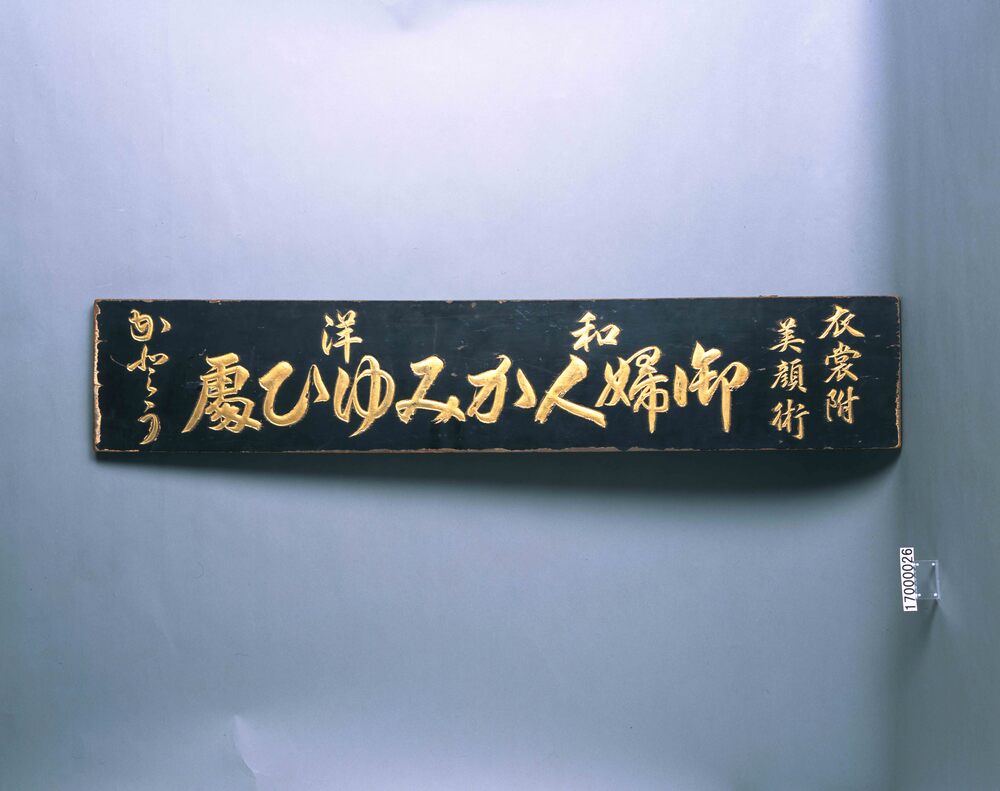 衣裳附
美顔術
和洋
御婦人かみゆひ處
17000026